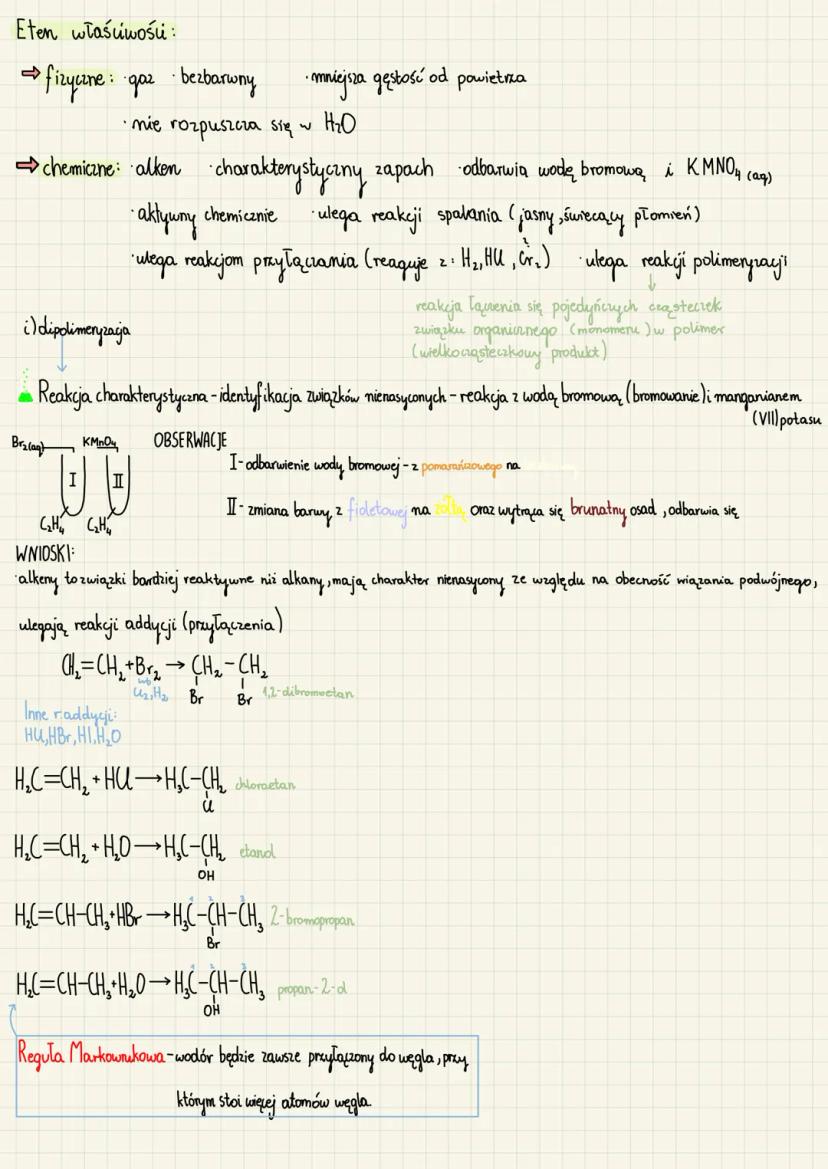 Eten właściwości:
fizyczne: · gaz · bezbarwny · mniejsza gęstość od powietrza
· nie rozpuszcza się w H₂O
chemiczne: · alken · charakterystyczny zapach · odbarwia wodę bromową i KMNO₄ (aq)
· aktywny chemicznie · ulega reakcji spalania (jasny, świecący płomień)
· ulega reakcjom przyłączania (reaguje z: H₂, HCl, Br₂) · ulega reakcji polimeryzacji
reakcja łączenia się pojedyńczych cząsteczek
związku organicznego (monomeru) w polimer
(wielkocząsteczkowy produkt)
i) dipolimeryzacja
Reakcja charakterystyczna - identyfikacja związków nienasyconych - reakcja z wodą bromową (bromowanie) i manganianem
(VII) potasu
Br₂(aq) KMnO₄ OBSERWACJE
I II
C₂H₄ C₂H₄
I - odbarwienie wody bromowej - z pomarańczowego na
II - zmiana barwy z fioletowej na żółtą oraz wytrąca się brunatny osad, odbarwia się
WNIOSKI:
· alkeny to związki bardziej reaktywne niż alkany, mają charakter nienasycony ze względu na obecność wiązania podwójnego,
ulegają reakcji addycji (przyłączenia)
CH₂=CH₂ + Br₂ → CH₂-CH₂
lub Cl₂, H₂ Br Br 1,2-dibromoetan
Inne r. addycji:
HCl, HBr, HI, H₂O
H₂C=CH₂ + HCl → H₃C-CH₂ chloroetan
Cl
H₂C=CH₂ + H₂O → H₃C-CH₂ etanol
OH
1 2 3
H₂C=CH-CH₃ + HBr → H₃C-CH-CH₃ 2-bromopropan
Br
1 2 3
H₂C=CH-CH₃ + H₂O → H₃C-CH-CH₃ propan-2-ol
OH
Reguła Markownikowa - wodór będzie zawsze przyłączony do węgla, przy
którym stoi więcej atomów węgla